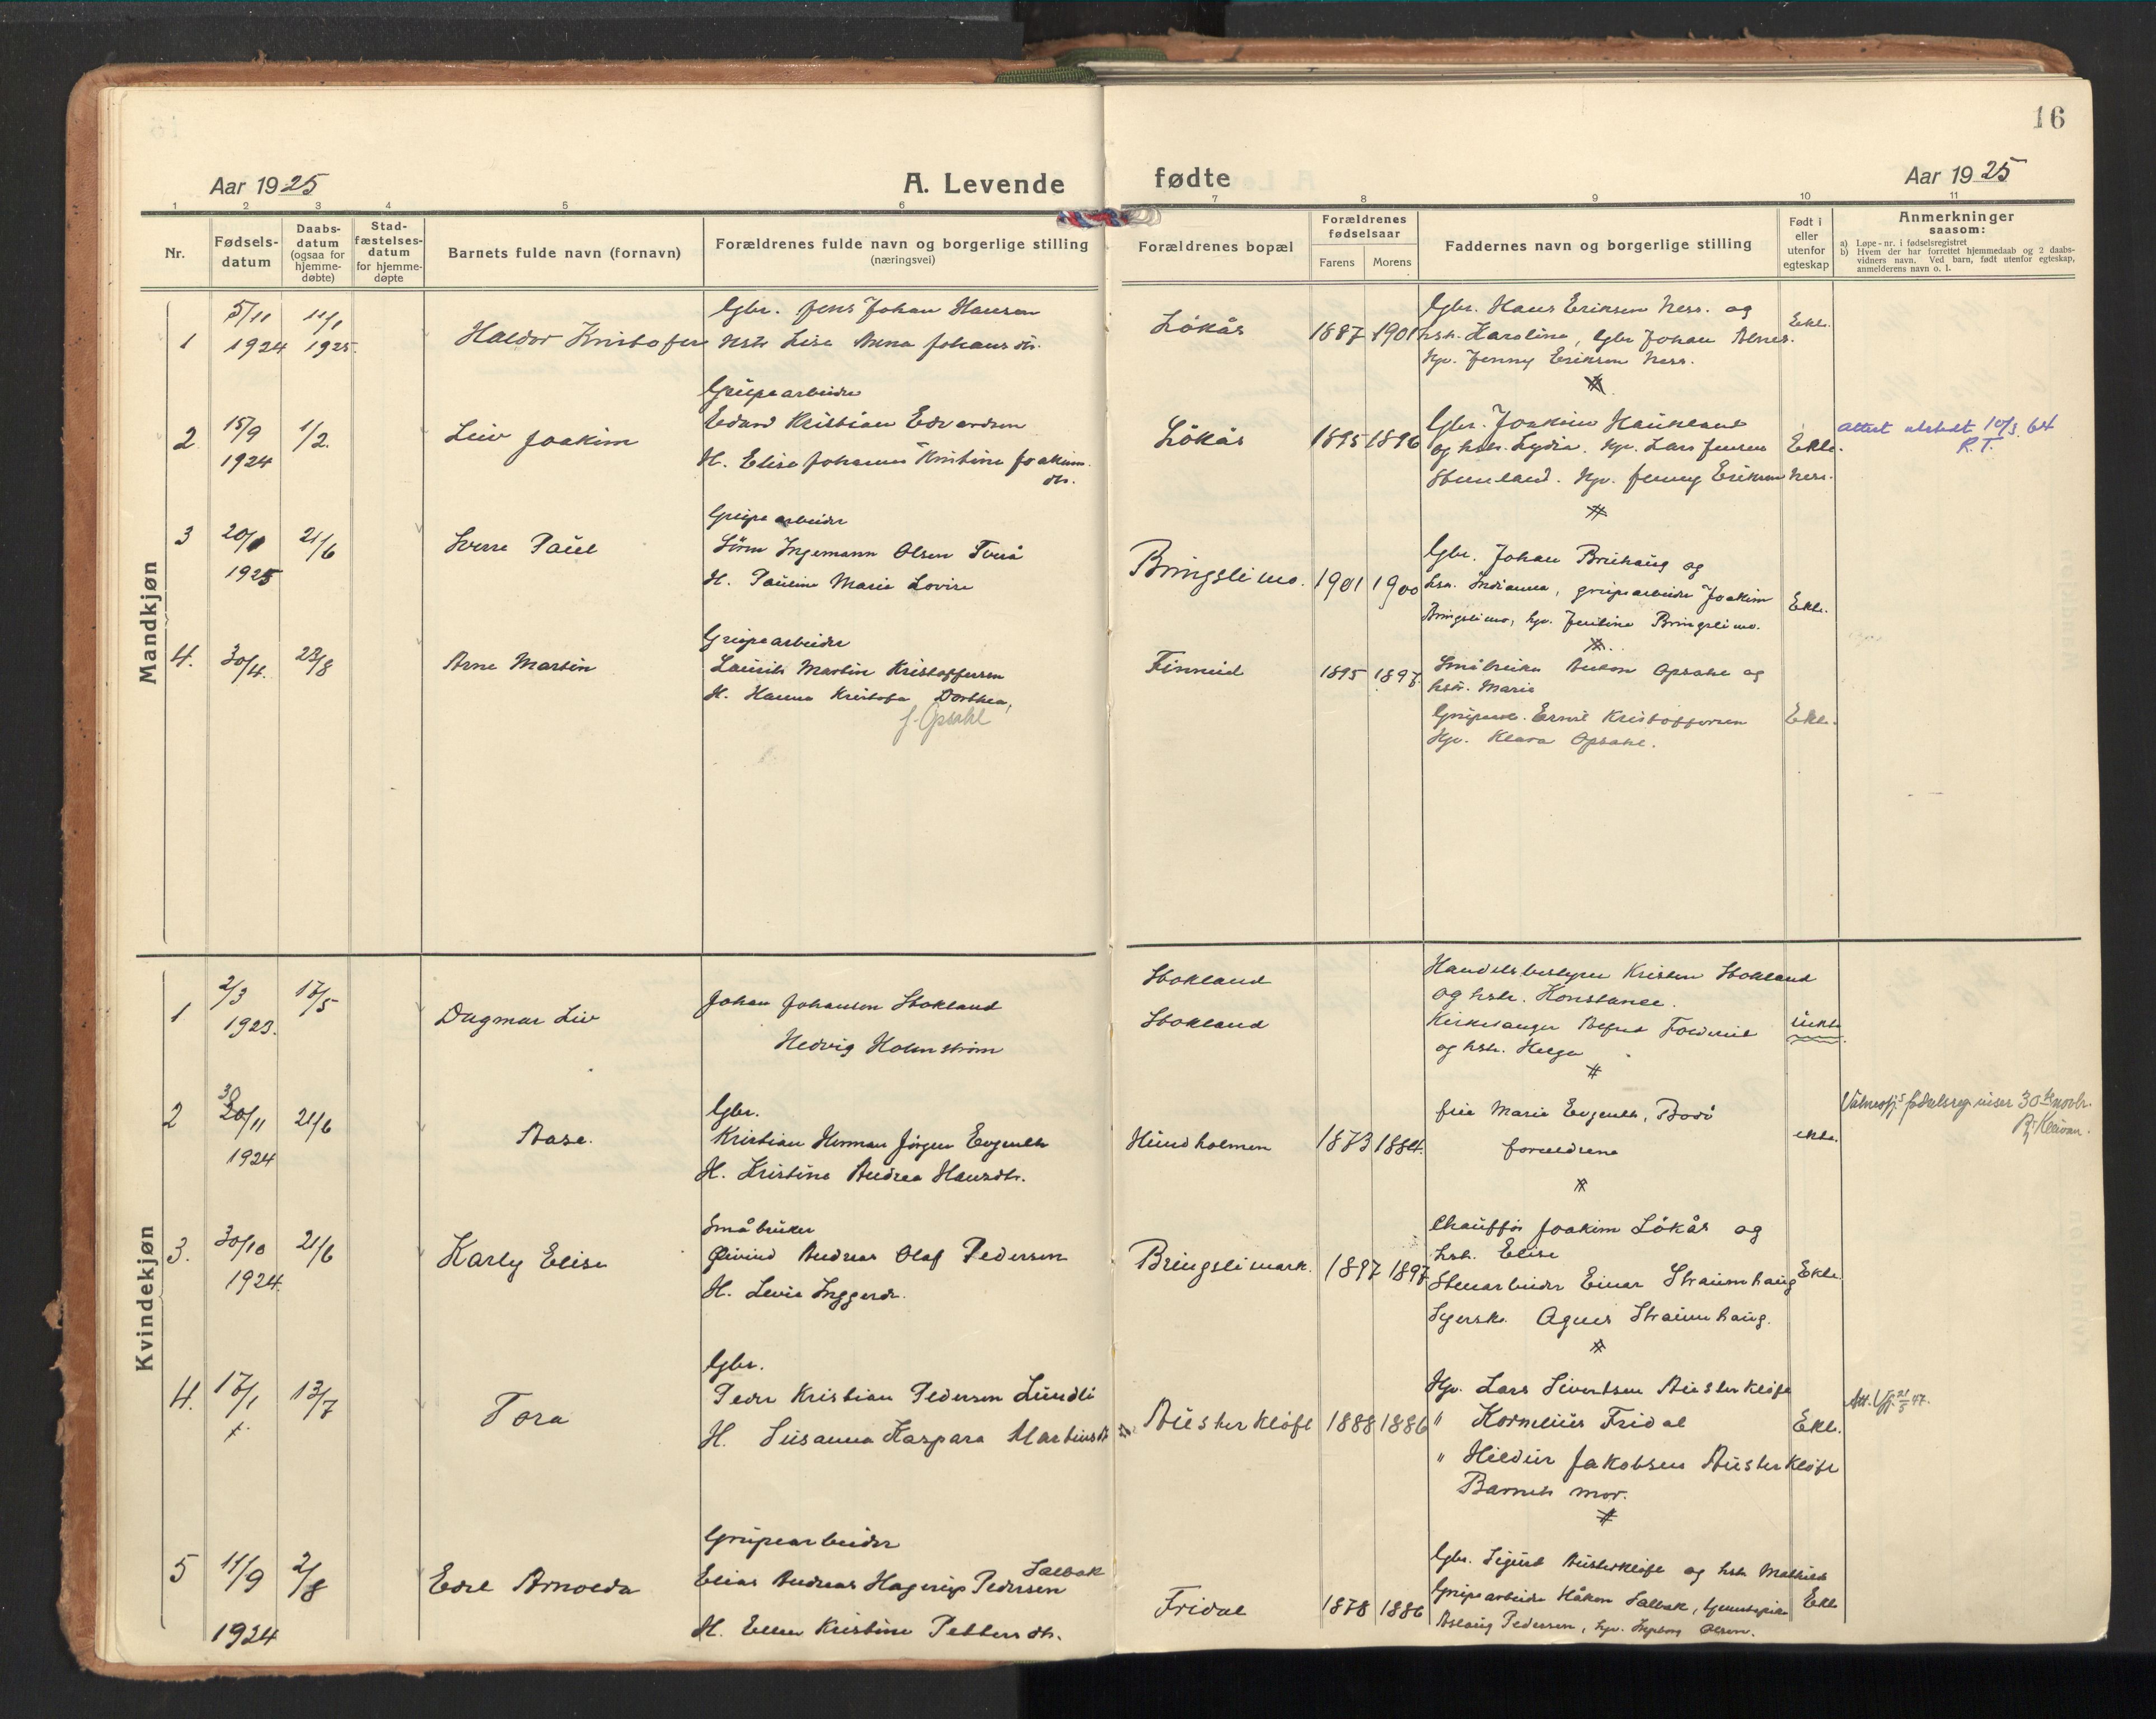 16
Aar 1925
A. Levende
fødte
Aar 1925
1 2 3 4 5 6 7 8 9 10 11
Nr.
Fødsels-
datum
Daabs-
datum
(ogsaa for
hjemme-
døbte)
Stad-
fæstelses-
datum
for hjemme-
døpte
Barnets fulde navn (fornavn)
Forældrenes fulde navn og borgerlige stilling
(næringsvei)
Forældrenes bopæl
Forældrenes
fødselsaar
Farens
Morens
Faddernes navn og borgerlige stilling
Født i
eller
utenfor
egteskap
Anmerkninger
saasom:
a) Løpe-nr. i fødselsregistret
b) Hvem der har forrettet hjemmedaab og 2 daabs-
vidners navn. Ved barn, født utenfor egteskap,
anmelderens navn o. l.
Mandkjøn
1
5/11
1924
11/1
1925.
Haldor Kristofer
Gbr. Jens Johan Hansen
Hstr Lise Anna Johansdtr.
Løkås
1887
1901
Gbr. Hans Eriksen Ness. og
hstr. Karoline, Gbr Johan Alnes.
Up. Jenny Eriksen Ness.
Ekte.
2
15/9
1924
1/2.
Leiv Joakim
Grubearbeider
Edvard Kristian Edvardsen
H. Elise Johanna Kristine Joakim.
dtr.
Løkås
1895
1896
Gbr. Joakim Haukland
og hstr. Lydia. Up. Lars Jensen
Stenland. Up. Jenny Eriksen Ness.
Ekte.
attest utstedt 10/3. 64
R.T.
3
20/1
1925
21/6
Sverre Paul
Grube arbeider
Søren Ingemann Olsen Tverå
H. Pauline Marie Lovise
Bringslimo.
1901
1900
Gbr. Johan Bruhaug og
hstr. Indianna, grubearbeider Joakim
Bringslimo, Up. Jentine Bringslimo.
Ekte.
4.
30/4.
23/8
Arne Martin
Grubearbeider
Laurits Martin Kristoffersen
H. Hanna Kristofa Dorthea,
f. Opsahl
Finneid
1895
1897.
Småbruker Anton Opsahl og
hstr. Marie
Grubearb. Ernst Kristoffersen
Up. Klara Opsahl.
Ekte.
Kvindekjøn
1
2/3
1923.
17/5
Dagmar Liv
Johan Johansen Stokland
Hedvig Holmstrøm
Stokland
Stokland
Handelsbestyrer Kristen Stokland
og hstr. Konstanse.
Kirkesanger Alfred Foldereid
og hstr. Helga
uekte
2
30
20/11
1924
21/6
Aase.
Gbr.
Kristian Herman Jørgen Evjenth
H. Kristine Andrea Hansdtr.
Hundholmen
1873
1884.
frue Marie Evjenth, Bodø
foreldrene
ekte.
fødselsreg. viser 30te novbr.
3.
30/10
1924.
21/6
Karly Elise
Småbruker
Øivind Andreas Olaf Pedersen
H. Levie Inggerdr.
Bringslimark.
1897
1897
Chauffør Joakim Løkås og
hstr. Elise
Stenarbeider Einar Straumhaug
Syersk. Agnes Straumhaug.
Ekte.
4.
17/1
13/7
Tora
Gbr.
Peder Kristian Pedersen Lundli
H. Susanna Kaspara Martinsdtr
Austerkløft
1888
1886
Up. Lars Sivertsen Austerkløft
" Kornelius Fridal
" Hildur Jakobsen Austerkløft
Barnets mor.
Ekte.
5
11/9
1924
2/8
Edel Arnolda
Grubearbeider
Saltbak
Elias Andreas Hagerup Pedersen
H. Ellen Kristine Pettersdtr.
Fridal
1878
1886
Gbr. Sigurd Austerkløft og hstr Mathilde
Grubearbeider Håkon Saltbak, tjenestepike
Aslaug Pedersen, Up. Ingeborg Olsen.
Ekte